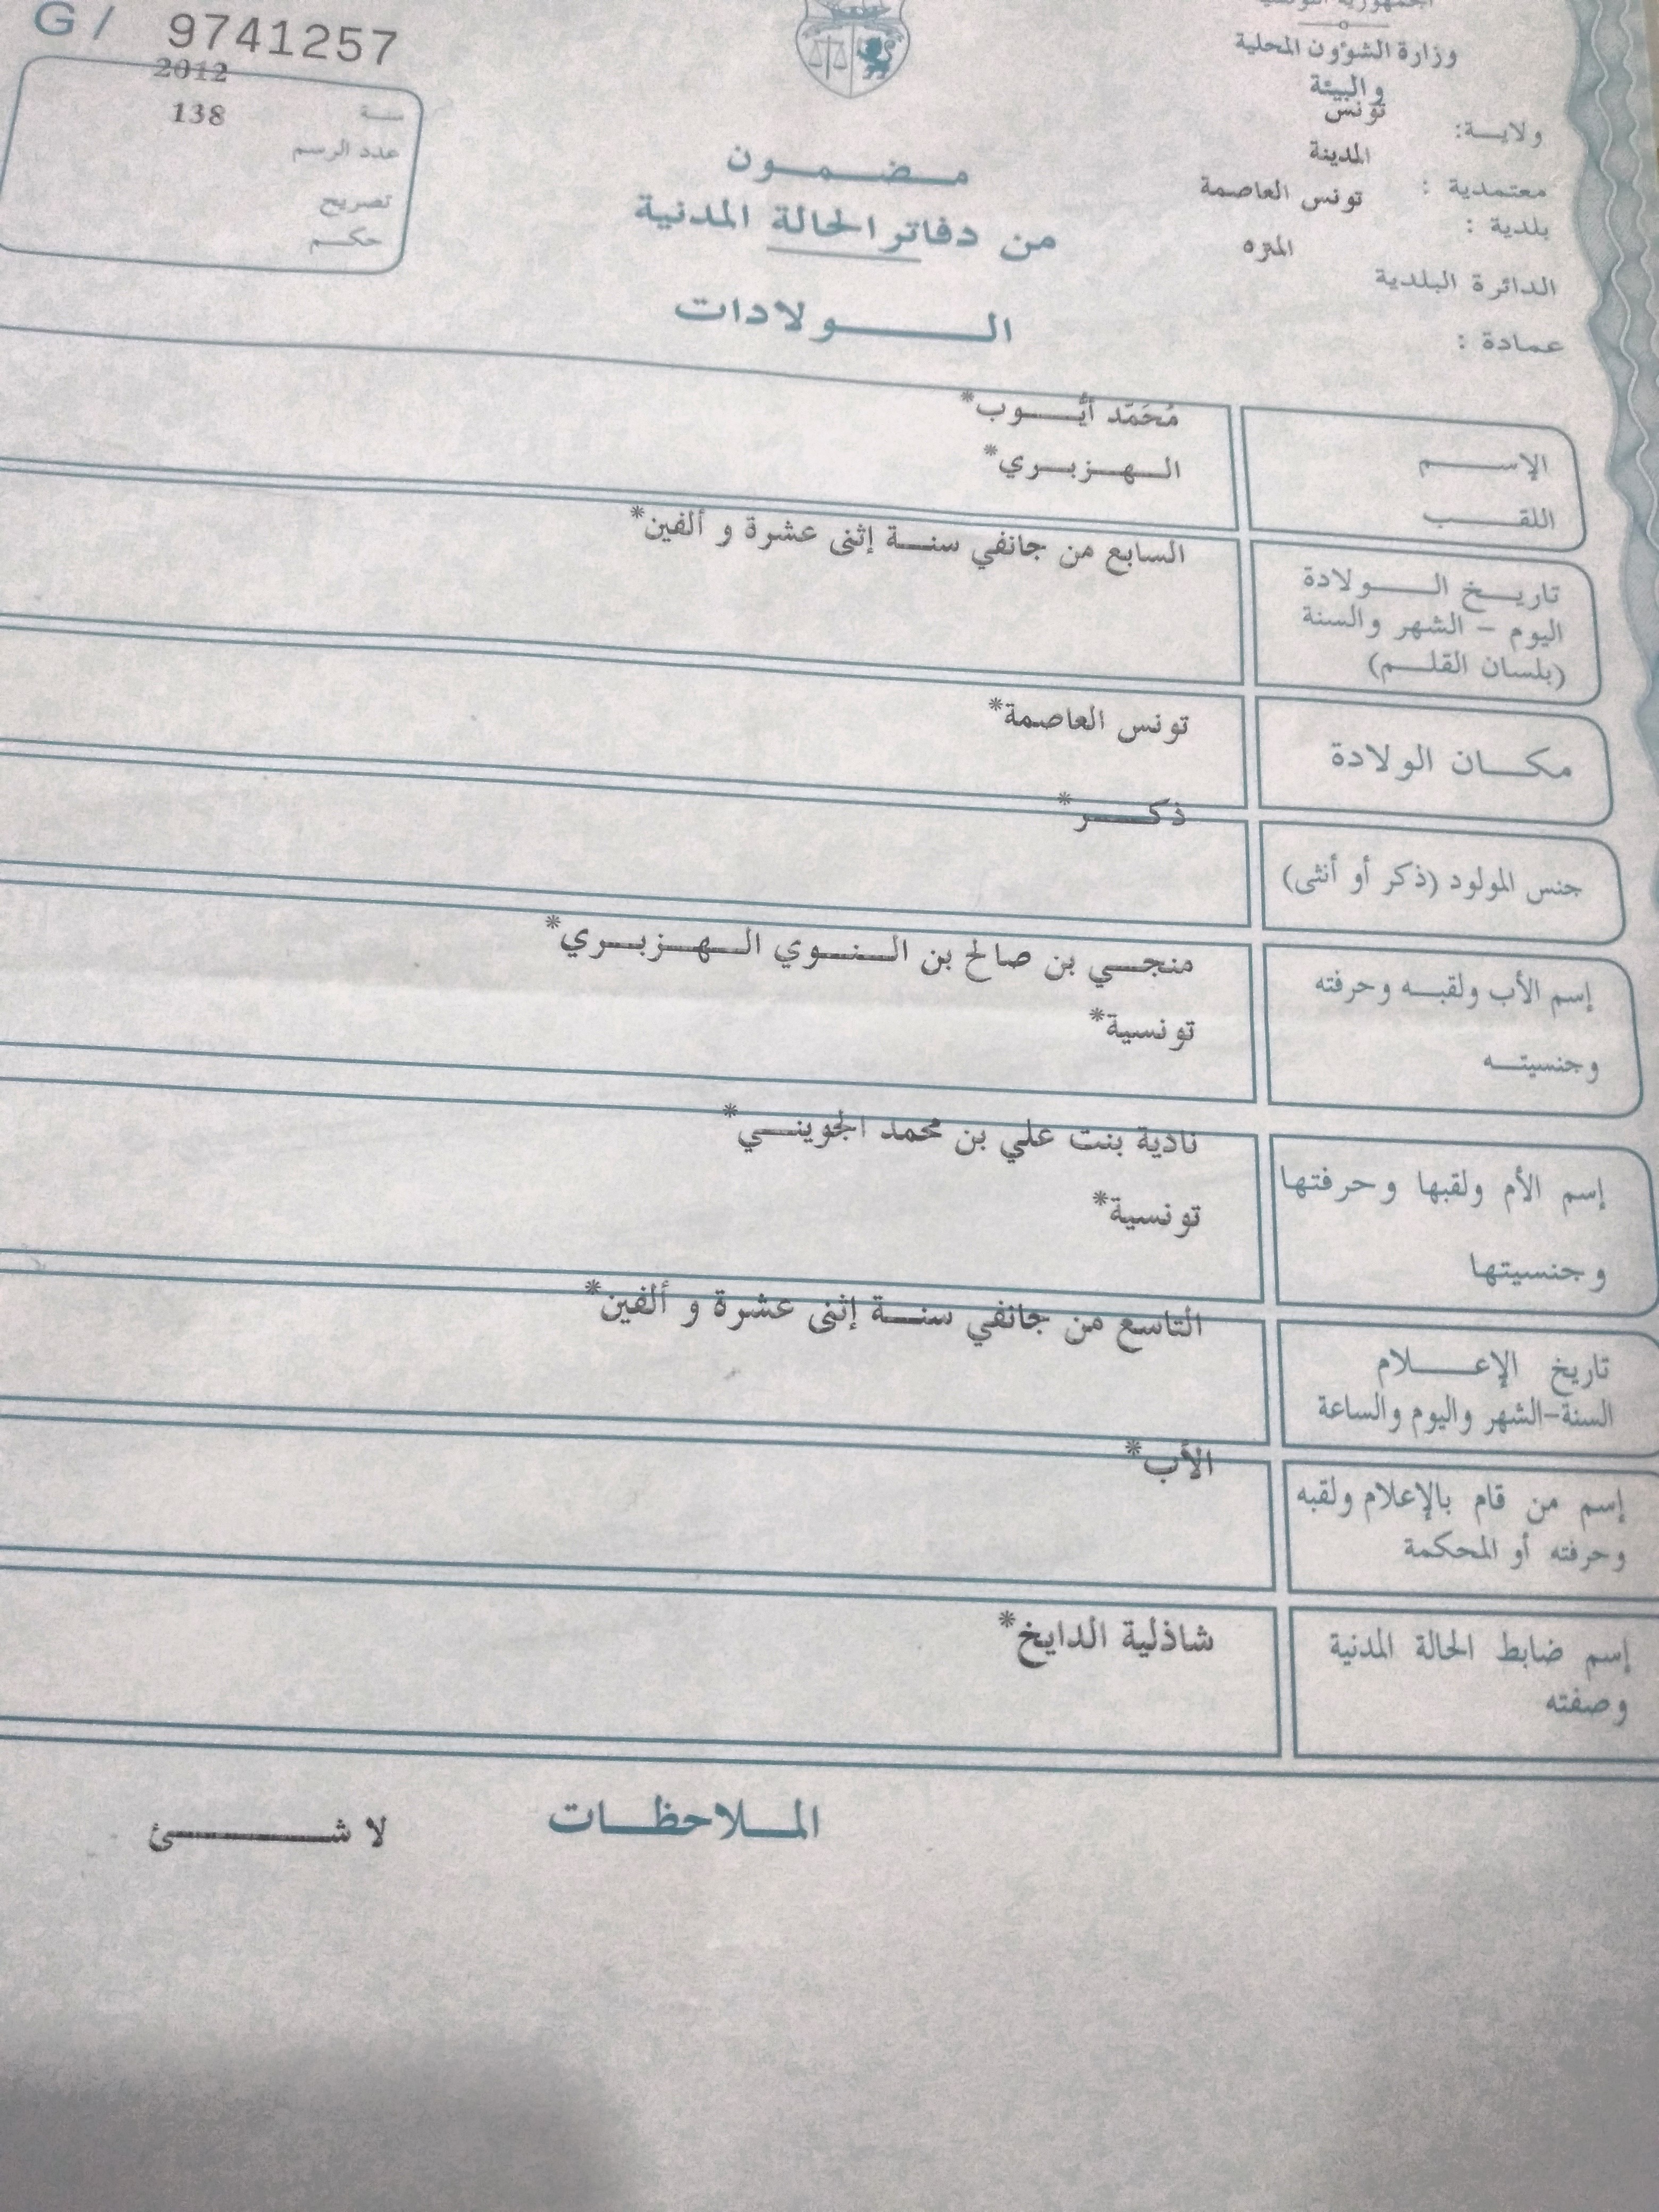 G/ 9741257
سنة 2012
عدد الرسم 138
تصريح
حكم
الجمهورية التونسية
وزارة الشؤون المحلية
والبيئة
ولاية: تونس
معتمدية : المدينة
بلدية : تونس العاصمة
الدائرة البلدية المنزه
عمادة :
مضمون
من دفاتر الحالة المدنية
الولادات
الإسم مُحَمّد أيُّوب*
اللقب الهزبري*
تاريخ الولادة السابع من جانفي سنة إثنى عشرة و ألفين*
اليوم - الشهر والسنة
(بلسان القلم)
مكان الولادة تونس العاصمة*
جنس المولود (ذكر أو أنثى) ذكر*
إسم الأب ولقبه وحرفته منجي بن صالح بن النوي الهزبري*
وجنسيته تونسية*
إسم الأم ولقبها وحرفتها نادية بنت علي بن محمد الجويني*
وجنسيتها تونسية*
تاريخ الإعلام التاسع من جانفي سنة إثنى عشرة و ألفين*
السنة-الشهر واليوم والساعة
إسم من قام بالإعلام ولقبه الأب*
وحرفته أو المحكمة
إسم ضابط الحالة المدنية شاذلية الدايخ*
وصفته
الملاحظات لا شئ